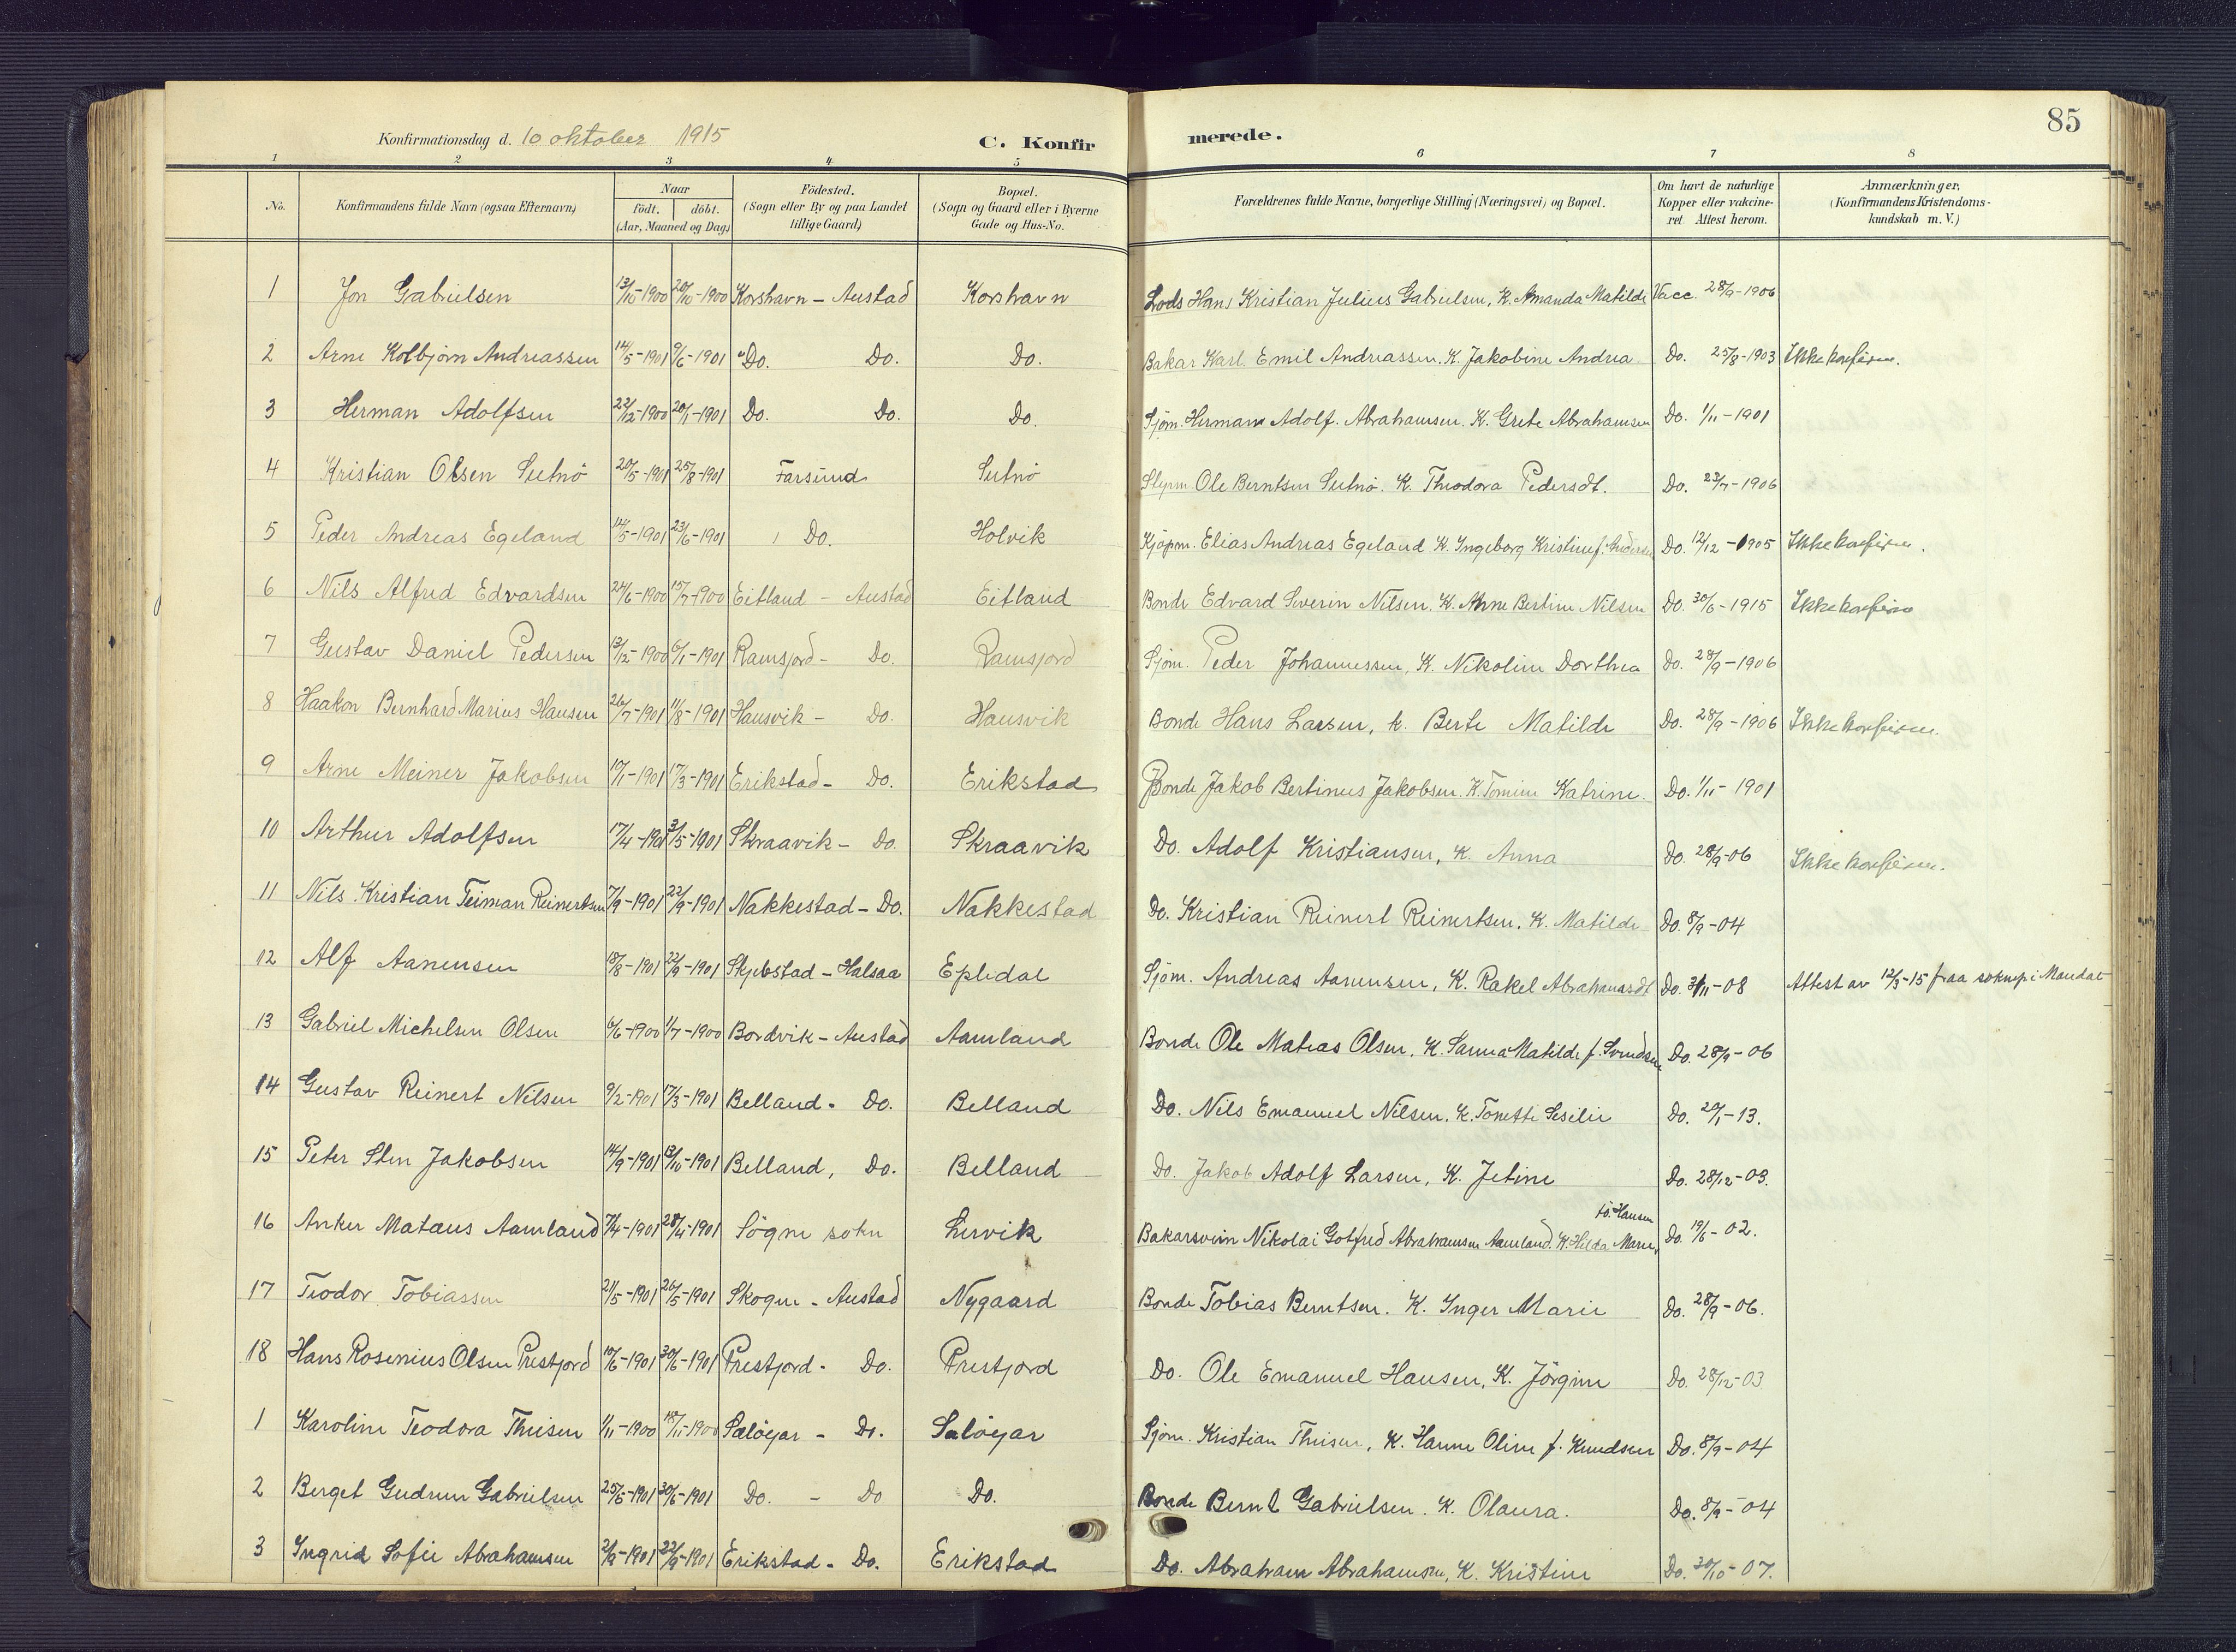 85
Konfirmationsdag d. 10 oktober 1915 C. Konfirmerede.
1 2 3 4 5 6 7 8
No. Konfirmandens fulde Navn (ogsaa Efternavn) Naar födt. döbt. (Aar, Maaned og Dag) Födested. (Sogn eller By og paa Landet tillige Gaard) Bopæl. (Sogn og Gaard eller i Byerne Gade og Hus-No. Forældrenes fulde Navne, borgerlige Stilling (Næringsvei) og Bopæl. Om havt de naturlige Kopper eller vakcineret. Attest herom. Anmærkninger. (Konfirmandens Kristendomskundskab m. V.)
1 Jon Gabrielsen 13/10-1900 20/10-1900 Korshavn - Austad Korshavn Lods Hans Kristian Julius Gabrielsen, K. Amanda Matilde Vacc. 28/9-1906
2 Arne Kolbjørn Andreassen 14/5-1901 9/6-1901 Do. Do. Do. Bakar Karl Emil Andreassen. K. Jakobine Andrea Do. 25/8-1903 Ikke konfirm.
3 Herman Adolfsen 22/12-1900 20/1-1901 Do. Do. Do. Sjøm. Herman Adolf Abrahamsen. K. Grete Abrahamsen Do. 1/11-1901
4 Kristian Olsen Sutnö 20/5-1901 25/8-1901 Farsund Sutnö Styrm. Ole Berntsen Sutnö. K. Theodora Pedersdt. Do. 23/7-1906
5 Peder Andreas Egeland 14/5-1901 23/6-1901 Do. Holvik Kjøpm. Elias Andreas Egeland K. Ingeborg Kristine f. Andersen Do. 12/12-1905 Ikke konfirm.
6 Nils Alfred Edvardsen 24/6-1900 15/7-1900 Eitland - Austad Eitland Bonde Edvard Severin Nilsen. K. Anne Bertine Nilsen Do. 30/6-1915 Ikke konfirm
7 Gustav Daniel Pedersen 13/12-1900 6/1-1901 Ramsjord - Do. Ramsjord Sjöm. Peder Johannessen, K. Nikoline Dorthea Do. 28/9-1906
8 Haakon Bernhard Marius Hansen 26/7-1901 11/8-1901 Hausvik - Do. Hausvik Bonde Hans Larsen, K. Berte Matilde Do. 28/9-1906 Ikke konfirm.
9 Arne Meiner Jakobsen 10/1-1901 17/3-1901 Erikstad - Do. Erikstad Bonde Jakob Bertinus Jakobsen. K. Tomine Katrine. Do. 1/11-1901
10 Arthur Adolfsen 17/4-1901 3/5-1901 Skraavik - Do. Skraavik Do. Adolf Kristiansen, K. Anna Do. 28/9-06 Ikke konfirm.
11 Nils Kristian Teiman Reinertsen 7/9-1901 22/9-1901 Nakkestad - Do. Nakkestad Do. Kristian Reinert Reinertsen. K. Matilde Do. 8/9-04
12 Alf Aanensen 18/8-1901 22/9-1901 Skjebstad - Halsaa Epledal Sjöm. Andreas Aanensen, K. Rakel Abrahamsdt Do. 3/11-08 Attest av 12/3-15 fraa soknep. i Mandal
13 Gabriel Michelsen Olsen 6/6-1900 1/7-1900 Bordvik - Austad Aamland Bonde Ole Matias Olsen. K. Sanna Matilde f. Svendsen Do. 28/9-06
14 Gustav Reinert Nilsen 9/2-1901 17/3-1901 Belland - Do. Belland Do. Nils Emanuel Nilsen. K. Tonette Sesilie Do. 20/1-13.
15 Peter Sten Jakobsen 14/9-1901 13/10-1901 Belland, Do. Belland Do. Jakob Adolf Larsen, K. Jetine Do. 28/12-03.
16 Anker Mataus Aamland 7/4-1901 28/4-1901 Sögne sokn Lervik Bakarsvein Nikolai Gotfred Abrahamsen Aamland. K. Hilda Marie fö. Hansen Do. 19/6-02.
17 Teodor Tobiassen 21/5-1901 26/5-1901 Skogen - Austad Nygaard Bonde Tobias Berntsen. K. Inger Marie Do. 28/9-06.
18 Hans Rosenius Olsen Prestjord 10/6-1901 30/6-1901 Prestjord - Do. Prestjord Do. Ole Emanuel Hansen, K. Jörgine Do. 28/12-03
1 Karoline Teodora Thuisen 1/11-1900 18/11-1900 Salöyar - Do. Salöyar Sjøm. Kristian Thuisen, K. Hanne Oline f. Knudsen Do. 8/9-04
2 Berget Gudrun Gabrielsen 25/5-1901 30/6-1901 Do. - Do Do. Bonde Bernt Gabrielsen. K. Olaura. Do. 8/9-04
3 Ingrid Sofie Abrahamsen 2/9-1901 22/9-1901 Erikstad - Do. Erikstad Do. Abraham Abrahamsen, K. Kristine Do. 30/10-07.